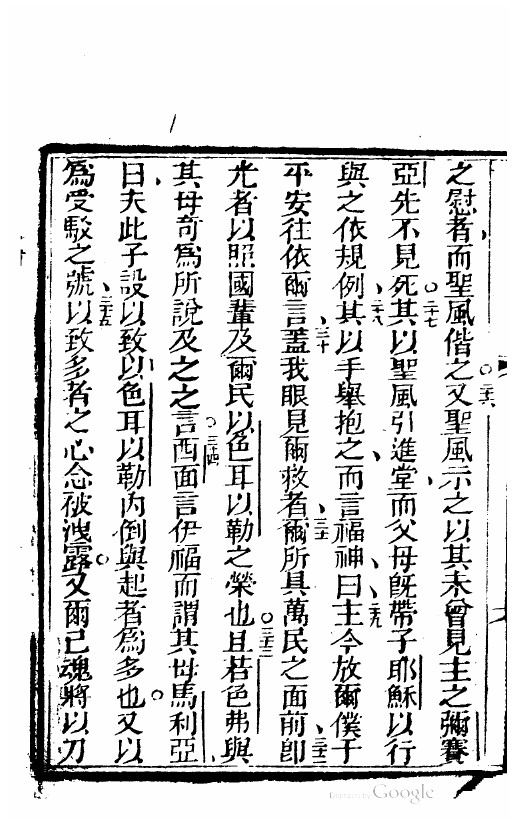 之慰者而聖風偕之又聖風示之以其未曾見主之彌賽
亞先不見死其以聖風引進堂而父母旣帶子耶穌以行
與之依規例其以手舉抱之而言福神曰主今放爾僕于
平安徃依爾言蓋我眼見爾救者爾所具萬民之面前卽
光者以照國輩及爾民以色耳以勒之榮也且若色弗與
其母奇爲所說及之之言西面言伊福而謂其母馬利亞
曰夫此子設以致以色耳以勒內倒與起者爲多也又以
爲受駁之號以致多者之心念被洩露又爾己魂將以刀
Google